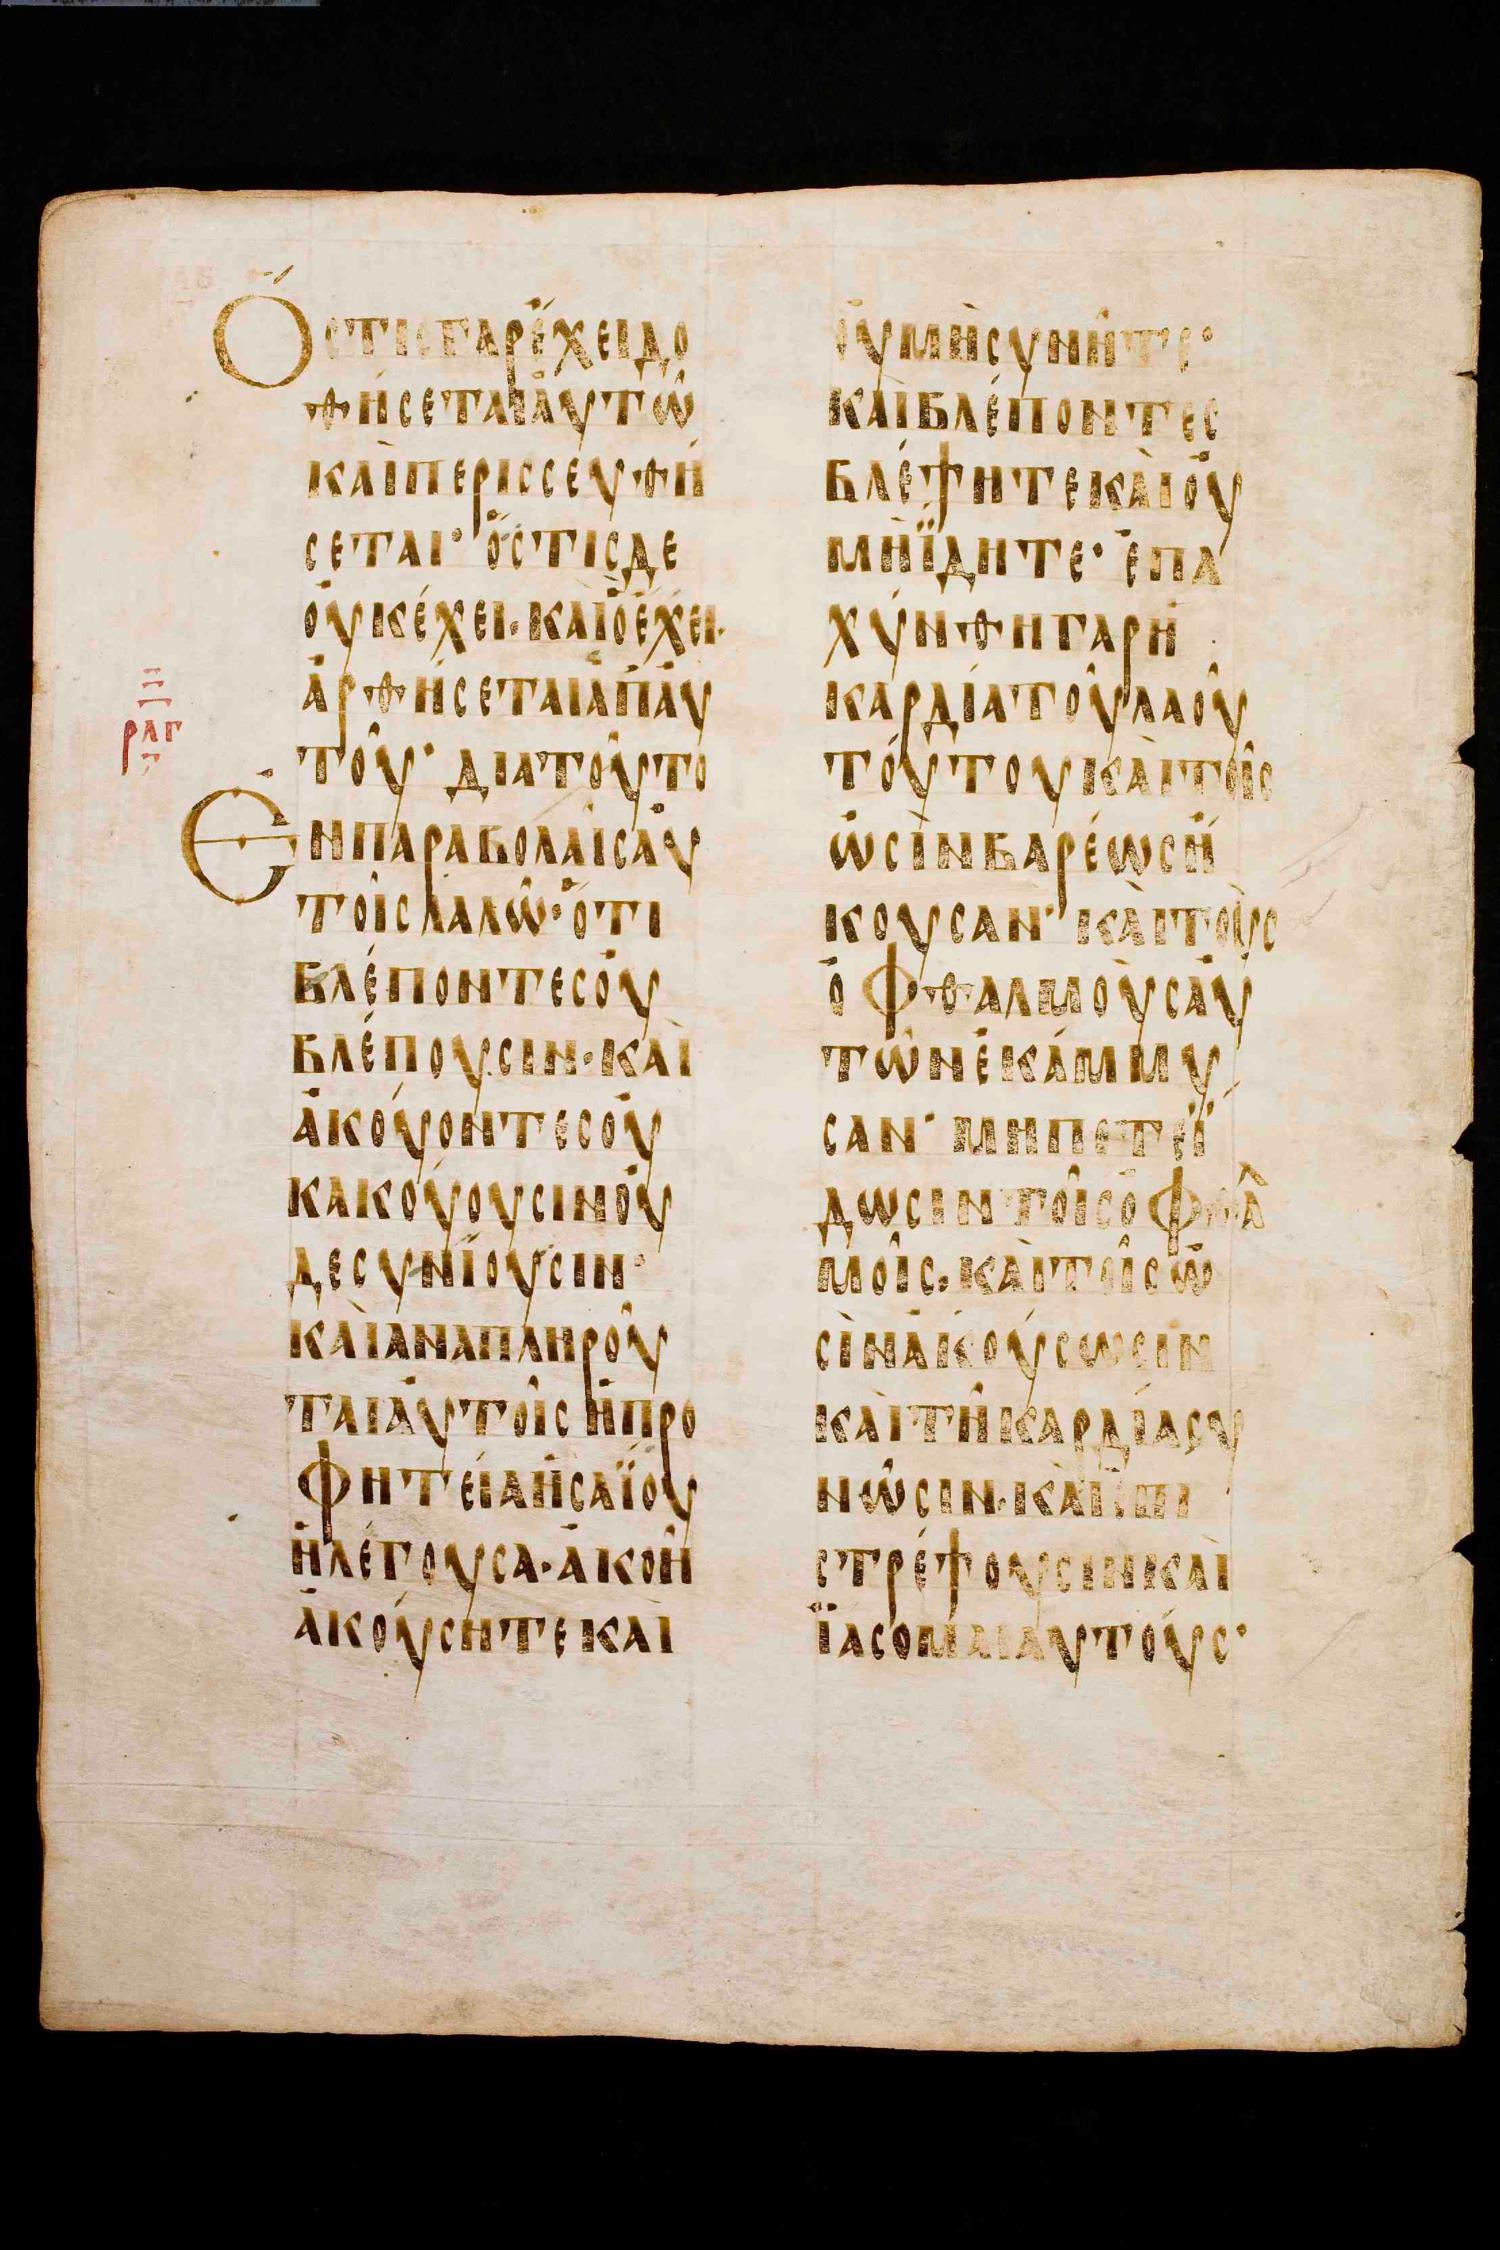 ὍστιςγὰρἔχειΔο
θήσεταιἀυτῶ
κὰιπερισσευθή
σεται· ὅστιςδε
ὀυκέχει· κὰιὃέχει·
ἀρθήσεταιἀπἀυ
τοῦ· διατοῦτο
ρλγ
Ἐνπαραβολᾶισἀυ
τοῖςλαλῶ· ὅτι
βλέποντεσὀυ
βλέπουσιν· κὰι
ἀκούοντεσὀυ
κακούουσινὀυ
δεσυνϊουσιν·
κὰιαναπληροῦ
ταιἀυτοῖςἡπρο
φητείαἠσαΐου
ἡλέγουσα· ἀκοῆ
ἀκούσητεκὰι
ὀυμὴσυνῆτε·
κὰιβλέποντες
βλέψητεκὰιὀυ
μὴΐδητε· ἐπα
χύνθηγαρἡ
καρδίατοῦλαοῦ
τόυτουκὰιτοῖς
ὠσὶνβαρέωσἤ
κουσαν· κὰιτοὺς
ὀφθαλμοὺσἀυ
τῶνἐκάμμυ
σαν· μηπετεΐ
δωσιντοῖσὀφθα
μοῖς· κὰιτοῖςὠ
σὶνἀκούσωσιν
κὰιτῆκαρδίασυ
νῶσιν· κὰιἐπι
στρέψουσινκὰι
ϊασομαιαυτούς·